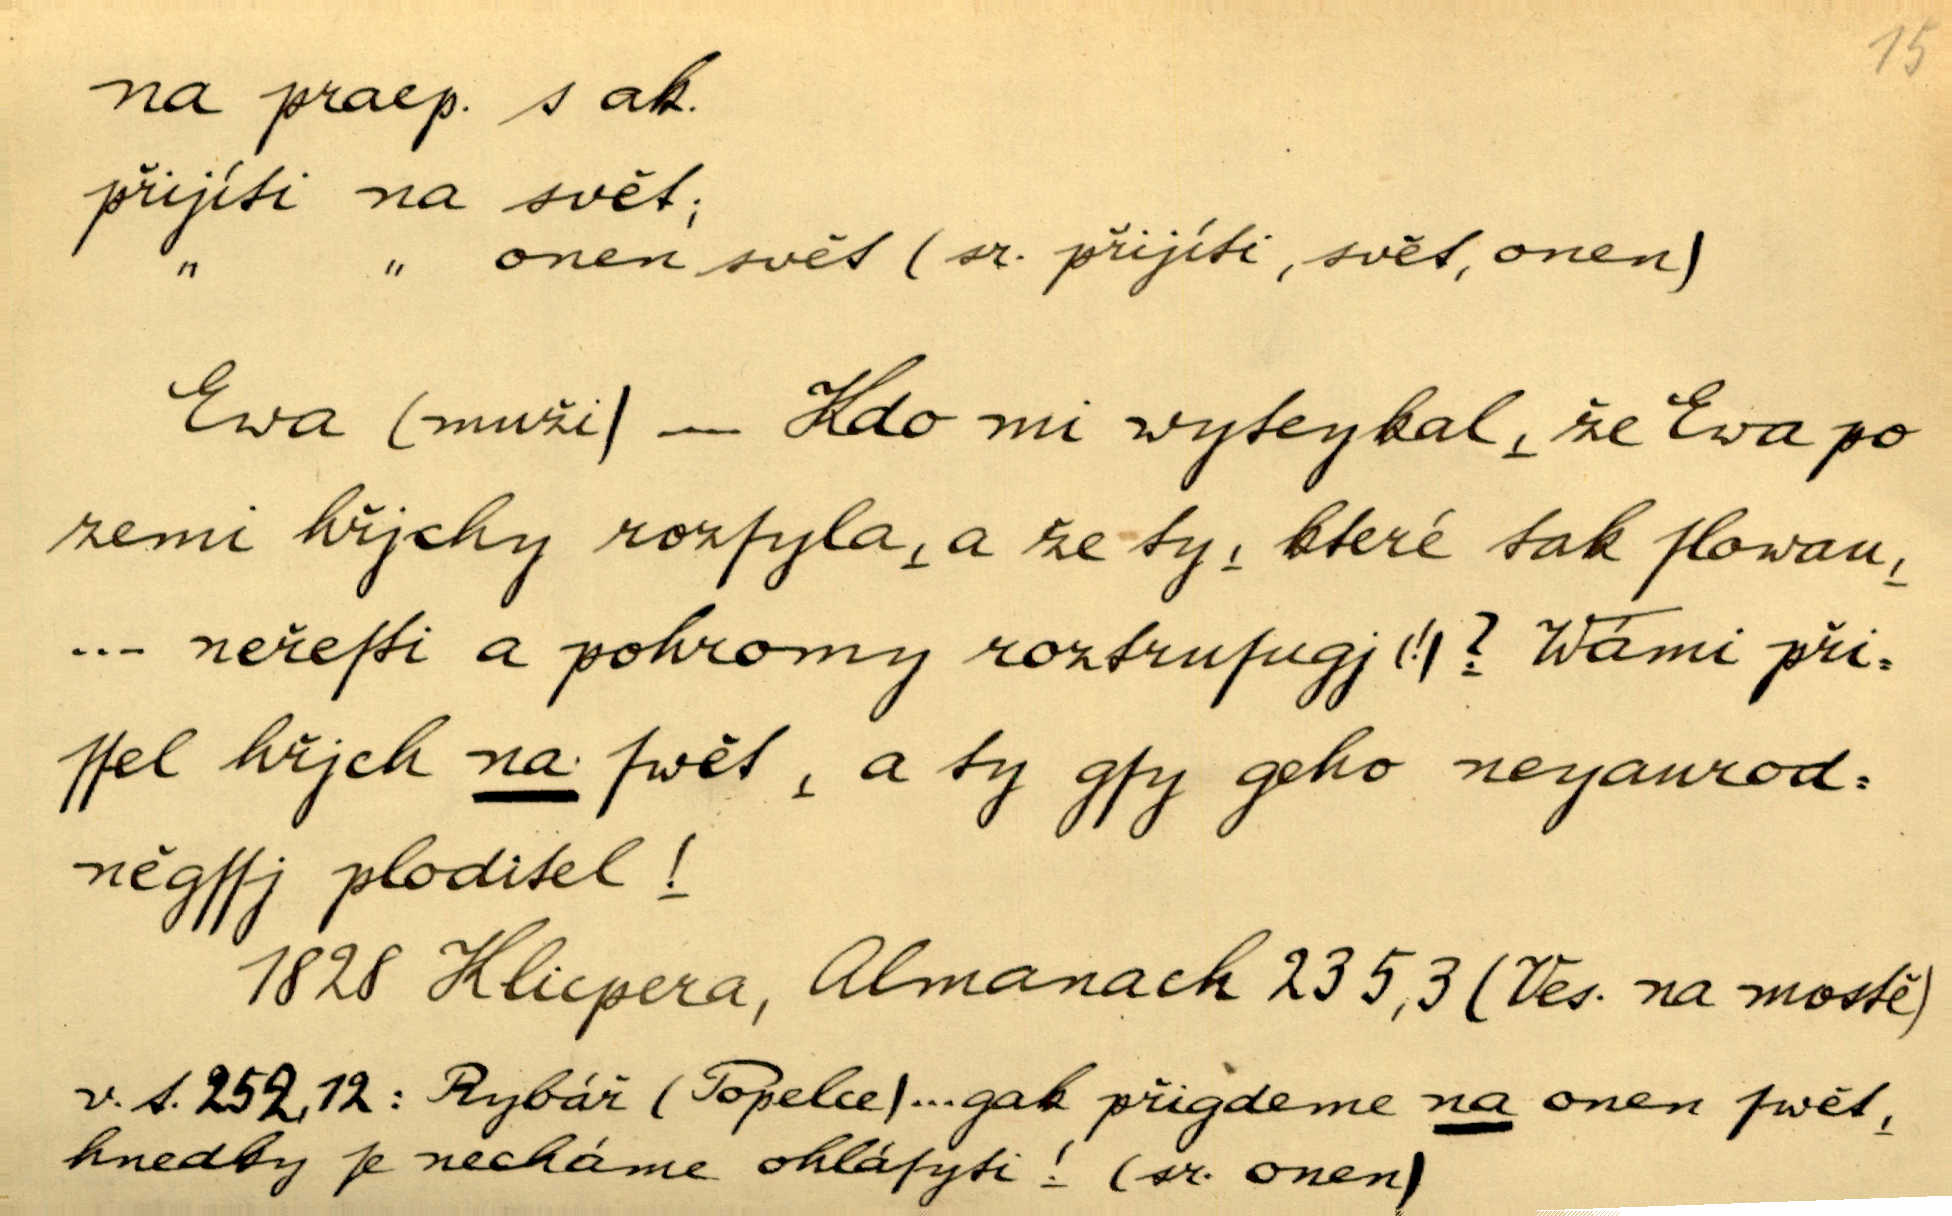 15
na praep. s ak.
přijíti na svět;
" " onen svět (sr. přijíti, svět, onen)
Ewa (muži) — Kdo mi wyteykal, že Ewa po
zemi hřjchy rozſyla, a že ty, které tak ſlowau,
... neřeſti a pohromy roztruſugj (!)? Wámi při-
ſſel hřjch na ſwět, a ty gſy geho neyaurod-
něgſſj ploditel!
1828 Klicpera, Almanach 235,3 (Ves. na mostě)
v. t. 252,12: Rybář (Popelce)...gak přigdeme na onen ſwět,
hnedby ſe necháme ohláſyti! (sr. onen)